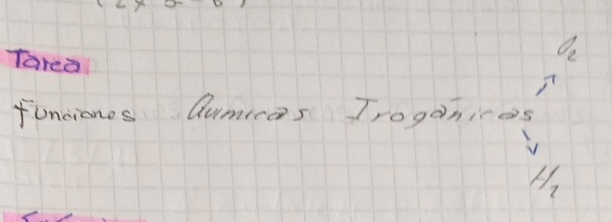 Tarea
O₂
Funciones Químicas Irogánicas
H₂